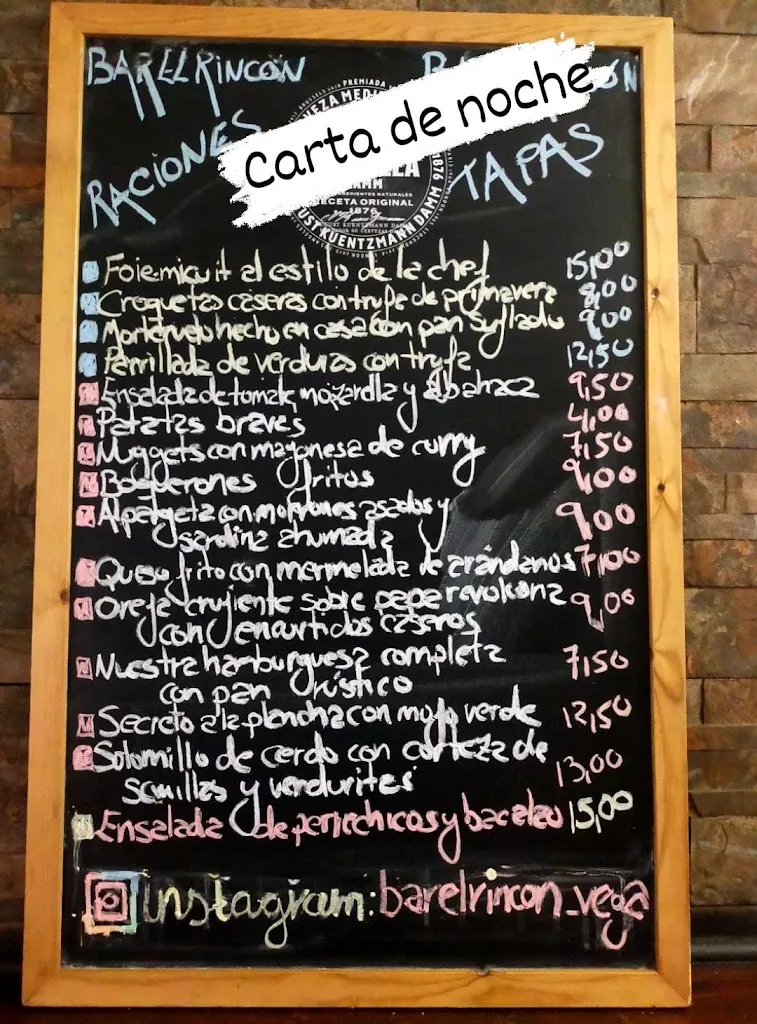 BAR EL RINCÓN
Carta de noche
RACIONES
TAPAS
PREMIADA
INGREDIENTES NATURALES
RECETA ORIGINAL
1876
AUGUST KUENTZMANN DAMM
Foie micuit al estilo de la chef 15,00
Croquetas caseras con trufa de primavera 8,00
Morteruelo hecho en casa con pan 9,00
Parrillada de verduras con trufa 12,50
Ensalada de tomate, mozarella y albahaca 9,50
Patatas bravas 4,00
Nuggets con mayonesa de curry 7,50
Boquerones fritos 9,00
con morrones asados y 9,00
sardina ahumada
Queso frito con mermelada de arándanos 7,00
Oreja crujiente sobre papa revolcona 9,00
con encurtidos caseros
Nuestra hamburguesa completa 7,50
con pan rústico
Secreto a la plancha con mojo verde 12,50
Solomillo de cerdo con corteza de 13,00
semillas y verduritas
Ensalada de perrechicos y bacalao 15,00
Instagram: barelrincon_vega